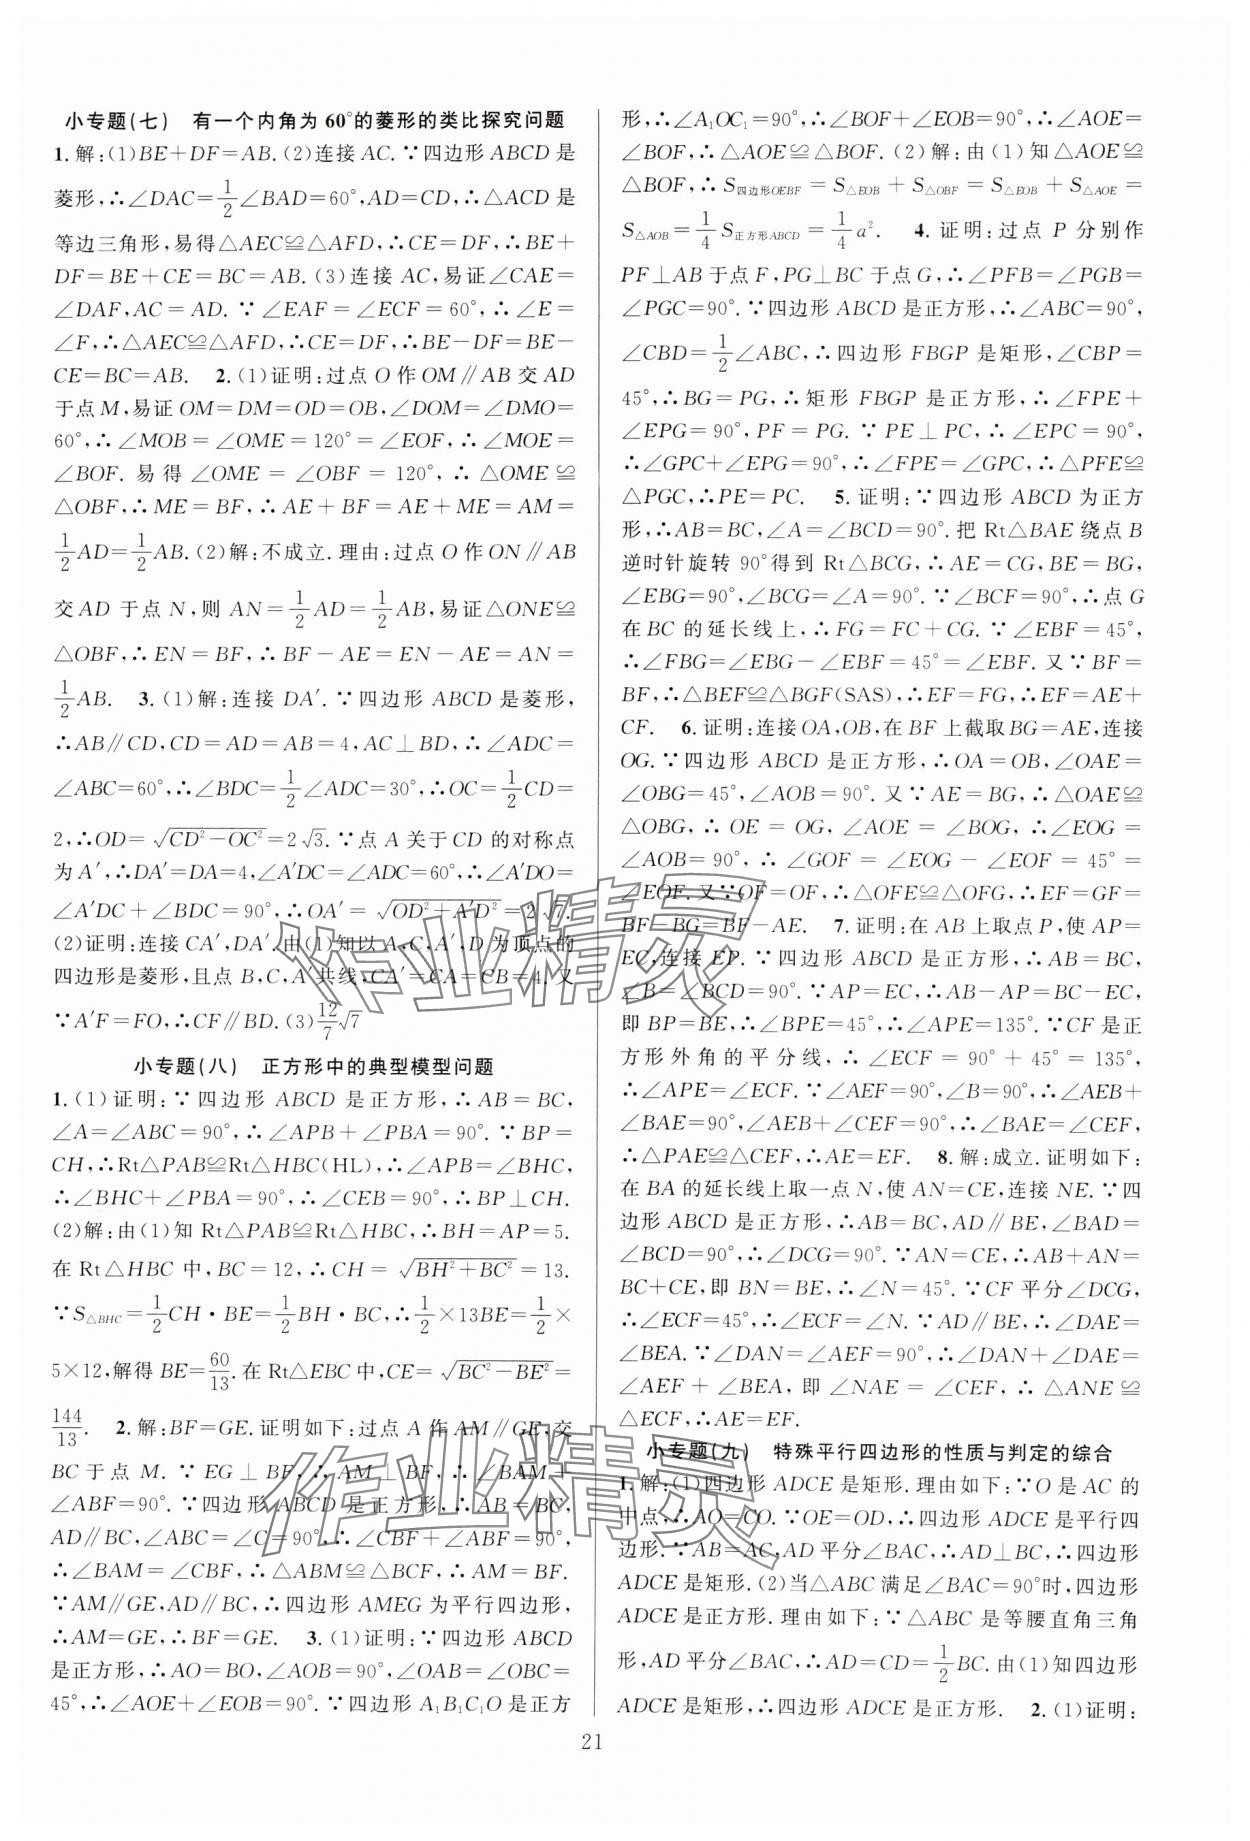 小专题(七) 有一个内角为60°的菱形的类比探究问题
1.解:(1)BE+DF=AB.(2)连接AC.∵四边形ABCD是
菱形,∴∠DAC=1/2∠BAD=60°,AD=CD,∴△ACD是
等边三角形,易得△AEC≌△AFD,∴CE=DF,∴BE+
DF=BE+CE=BC=AB.(3)连接AC,易证∠CAE=
∠DAF,AC=AD.∵∠EAF=∠ECF=60°,∴∠E=
∠F,∴△AEC≌△AFD,∴CE=DF,∴BE-DF=BE-
CE=BC=AB. 2.(1)证明:过点O作OM∥AB交AD
于点M,易证OM=DM=OD=OB,∠DOM=∠DMO=
60°,∴∠MOB=∠OME=120°=∠EOF,∴∠MOE=
∠BOF.易得∠OME=∠OBF=120°,∴△OME≌
△OBF,∴ME=BF,∴AE+BF=AE+ME=AM=
1/2AD=1/2AB.(2)解:不成立.理由:过点O作ON∥AB
交AD于点N,则AN=1/2AD=1/2AB,易证△ONE≌
△OBF,∴EN=BF,∴BF-AE=EN-AE=AN=
1/2AB. 3.(1)解:连接DA′.∵四边形ABCD是菱形,
∴AB∥CD,CD=AD=AB=4,AC⊥BD,∴∠ADC=
∠ABC=60°,∴∠BDC=1/2∠ADC=30°,∴OC=1/2CD=
2,∴OD=√(CD²-OC²)=2√3.∵点A关于CD的对称点
为A′,∴DA′=DA=4,∠A′DC=∠ADC=60°,∴∠A′DO=
∠A′DC+∠BDC=90°,∴OA′=√(OD²+A′D²)=2√7.
(2)证明:连接CA′,DA′.由(1)知以A,C,A′,D为顶点的
四边形是菱形,且点B,C,A′共线,∴CA′=CA=CB=4.又
∵A′F=FO,∴CF∥BD.(3)12/7√7
小专题(八) 正方形中的典型模型问题
1.(1)证明:∵四边形ABCD是正方形,∴AB=BC,
∠A=∠ABC=90°,∴∠APB+∠PBA=90°.∵BP=
CH,∴Rt△PAB≌Rt△HBC(HL),∴∠APB=∠BHC,
∴∠BHC+∠PBA=90°,∴∠CEB=90°,∴BP⊥CH.
(2)解:由(1)知Rt△PAB≌Rt△HBC,∴BH=AP=5.
在Rt△HBC中,BC=12,∴CH=√(BH²+BC²)=13.
∵S△BHC=1/2CH·BE=1/2BH·BC,∴1/2×13BE=1/2×
5×12,解得BE=60/13.在Rt△EBC中,CE=√(BC²-BE²)=
144/13. 2.解:BF=GE.证明如下:过点A作AM∥GE,交
BC于点M.∵EG⊥BF,∴AM⊥BF,∴∠BAM+
∠ABF=90°.∵四边形ABCD是正方形,∴AB=BC,
AD∥BC,∠ABC=∠C=90°,∴∠CBF+∠ABF=90°,
∴∠BAM=∠CBF,∴△ABM≌△BCF,∴AM=BF.
∵AM∥GE,AD∥BC,∴四边形AMEG为平行四边形,
∴AM=GE,∴BF=GE. 3.(1)证明:∵四边形ABCD
是正方形,∴AO=BO,∠AOB=90°,∠OAB=∠OBC=
45°,∴∠AOE+∠EOB=90°.∵四边形A₁B₁C₁O是正方
形,∴∠A₁OC₁=90°,∴∠BOF+∠EOB=90°,∴∠AOE=
∠BOF,∴△AOE≌△BOF.(2)解:由(1)知△AOE≌
△BOF,∴S四边形OEBF=S△EOB+S△OBF=S△EOB+S△AOE=
S△AOB=1/4S正方形ABCD=1/4a². 4.证明:过点P分别作
PF⊥AB于点F,PG⊥BC于点G,∴∠PFB=∠PGB=
∠PGC=90°.∵四边形ABCD是正方形,∴∠ABC=90°,
∠CBD=1/2∠ABC,∴四边形FBGP是矩形,∠CBP=
45°,∴BG=PG,∴矩形FBGP是正方形,∴∠FPE+
∠EPG=90°,PF=PG.∵PE⊥PC,∴∠EPC=90°,
∴∠GPC+∠EPG=90°,∴∠FPE=∠GPC,∴△PFE≌
△PGC,∴PE=PC. 5.证明:∵四边形ABCD为正方
形,∴AB=BC,∠A=∠BCD=90°.把Rt△BAE绕点B
逆时针旋转90°得到Rt△BCG,∴AE=CG,BE=BG,
∠EBG=90°,∠BCG=∠A=90°.∵∠BCF=90°,∴点G
在BC的延长线上,∴FG=FC+CG.∵∠EBF=45°,
∴∠FBG=∠EBG-∠EBF=45°=∠EBF.又∵BF=
BF,∴△BEF≌△BGF(SAS),∴EF=FG,∴EF=AE+
CF. 6.证明:连接OA,OB,在BF上截取BG=AE,连接
OG.∵四边形ABCD是正方形,∴OA=OB,∠OAE=
∠OBG=45°,∠AOB=90°.又∵AE=BG,∴△OAE≌
△OBG,∴OE=OG,∠AOE=∠BOG,∴∠EOG=
∠AOB=90°,∴∠GOF=∠EOG-∠EOF=45°=
∠EOF.又∵OF=OF,∴△OFE≌△OFG,∴EF=GF=
BF-BG=BF-AE. 7.证明:在AB上取点P,使AP=
EC,连接EP.∵四边形ABCD是正方形,∴AB=BC,
∠B=∠BCD=90°.∵AP=EC,∴AB-AP=BC-EC,
即BP=BE,∴∠BPE=45°,∴∠APE=135°.∵CF是正
方形外角的平分线,∴∠ECF=90°+45°=135°,
∴∠APE=∠ECF.∵∠AEF=90°,∠B=90°,∴∠AEB+
∠BAE=90°,∠AEB+∠CEF=90°,∴∠BAE=∠CEF,
∴△PAE≌△CEF,∴AE=EF. 8.解:成立.证明如下:
在BA的延长线上取一点N,使AN=CE,连接NE.∵四
边形ABCD是正方形,∴AB=BC,AD∥BE,∠BAD=
∠BCD=90°,∴∠DCG=90°.∵AN=CE,∴AB+AN=
BC+CE,即BN=BE,∴∠N=45°.∵CF平分∠DCG,
∴∠ECF=45°,∴∠ECF=∠N.∵AD∥BE,∴∠DAE=
∠BEA.∵∠DAN=∠AEF=90°,∴∠DAN+∠DAE=
∠AEF+∠BEA,即∠NAE=∠CEF,∴△ANE≌
△ECF,∴AE=EF.
小专题(九) 特殊平行四边形的性质与判定的综合
1.解:(1)四边形ADCE是矩形.理由如下:∵O是AC的
中点,∴AO=CO.∵OE=OD,∴四边形ADCE是平行四
边形.∵AB=AC,AD平分∠BAC,∴AD⊥BC,∴四边形
ADCE是矩形.(2)当△ABC满足∠BAC=90°时,四边形
ADCE是正方形.理由如下:∵△ABC是等腰直角三角
形,AD平分∠BAC,∴AD=CD=1/2BC.由(1)知四边形
ADCE是矩形,∴四边形ADCE是正方形. 2.(1)证明:
21
作业精灵
作业精灵